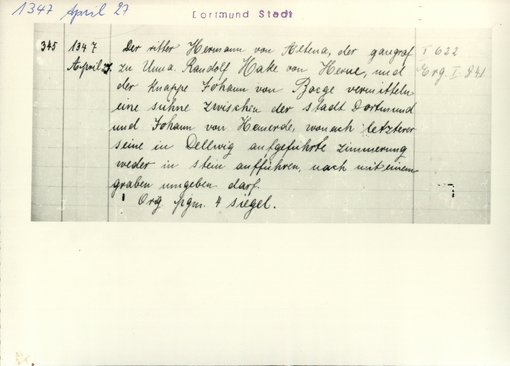 1347 April 27
Dortmund Stadt
345 1347 Der ritter Hermann von Altena, der gaugraf I 622
April zu Unna Randolf Hake von Herne, und Erg. I. 841
der knappe Johann von Boege vermitteln
eine sühne zwischen der stadt Dortmund
und Johann von Hemerde, wonach letzterer
seine in Dellwig aufgeführte zimmerung
weder in stein aufführen, noch mit einem
graben umgeben darf.
Org. pgm. 4 siegel.